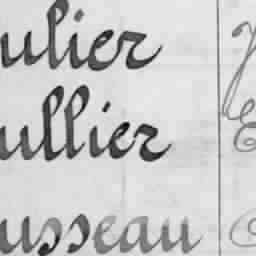 ulier
ullier
usseau